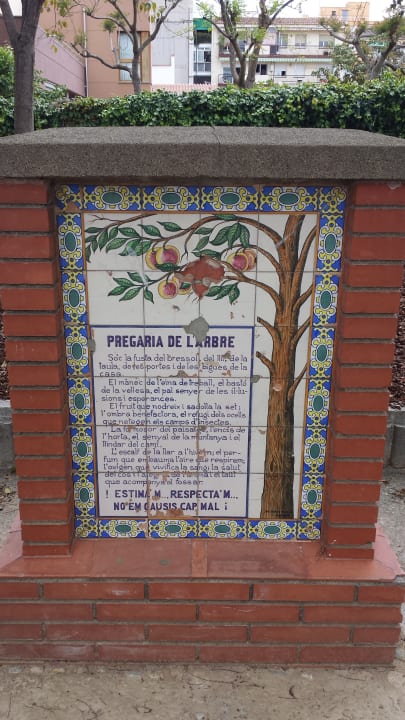 PREGARIA DE L'ARBRE
Sóc la fusta del bressol, del llit, de la
taula, de les portes i de les bigues de la
casa.
El mànec de l'eina de treball, el bastó
de la vellesa, el pal senyer de les il·lu-
sions i esperances.
El fruit que nodreix i sadolla la set;
l'ombra benefactora, el refugi dels ocells
que netegen els camps d'insectes.
La del paisatge, l'encís de
l'horta, el senyal de la muntanya i el
llindar del camí.
L'escalf de la llar a l'hivern; el per-
fum que embauma l'aire que respirem,
l'oxigen que vivifica la sang; la salut
del cos i de l'ànima; i el taüt
que acompanya al fossar.
! ESTIMA'M... RESPECTA'M...
NO'EM CAUSIS CAP MAL ¡